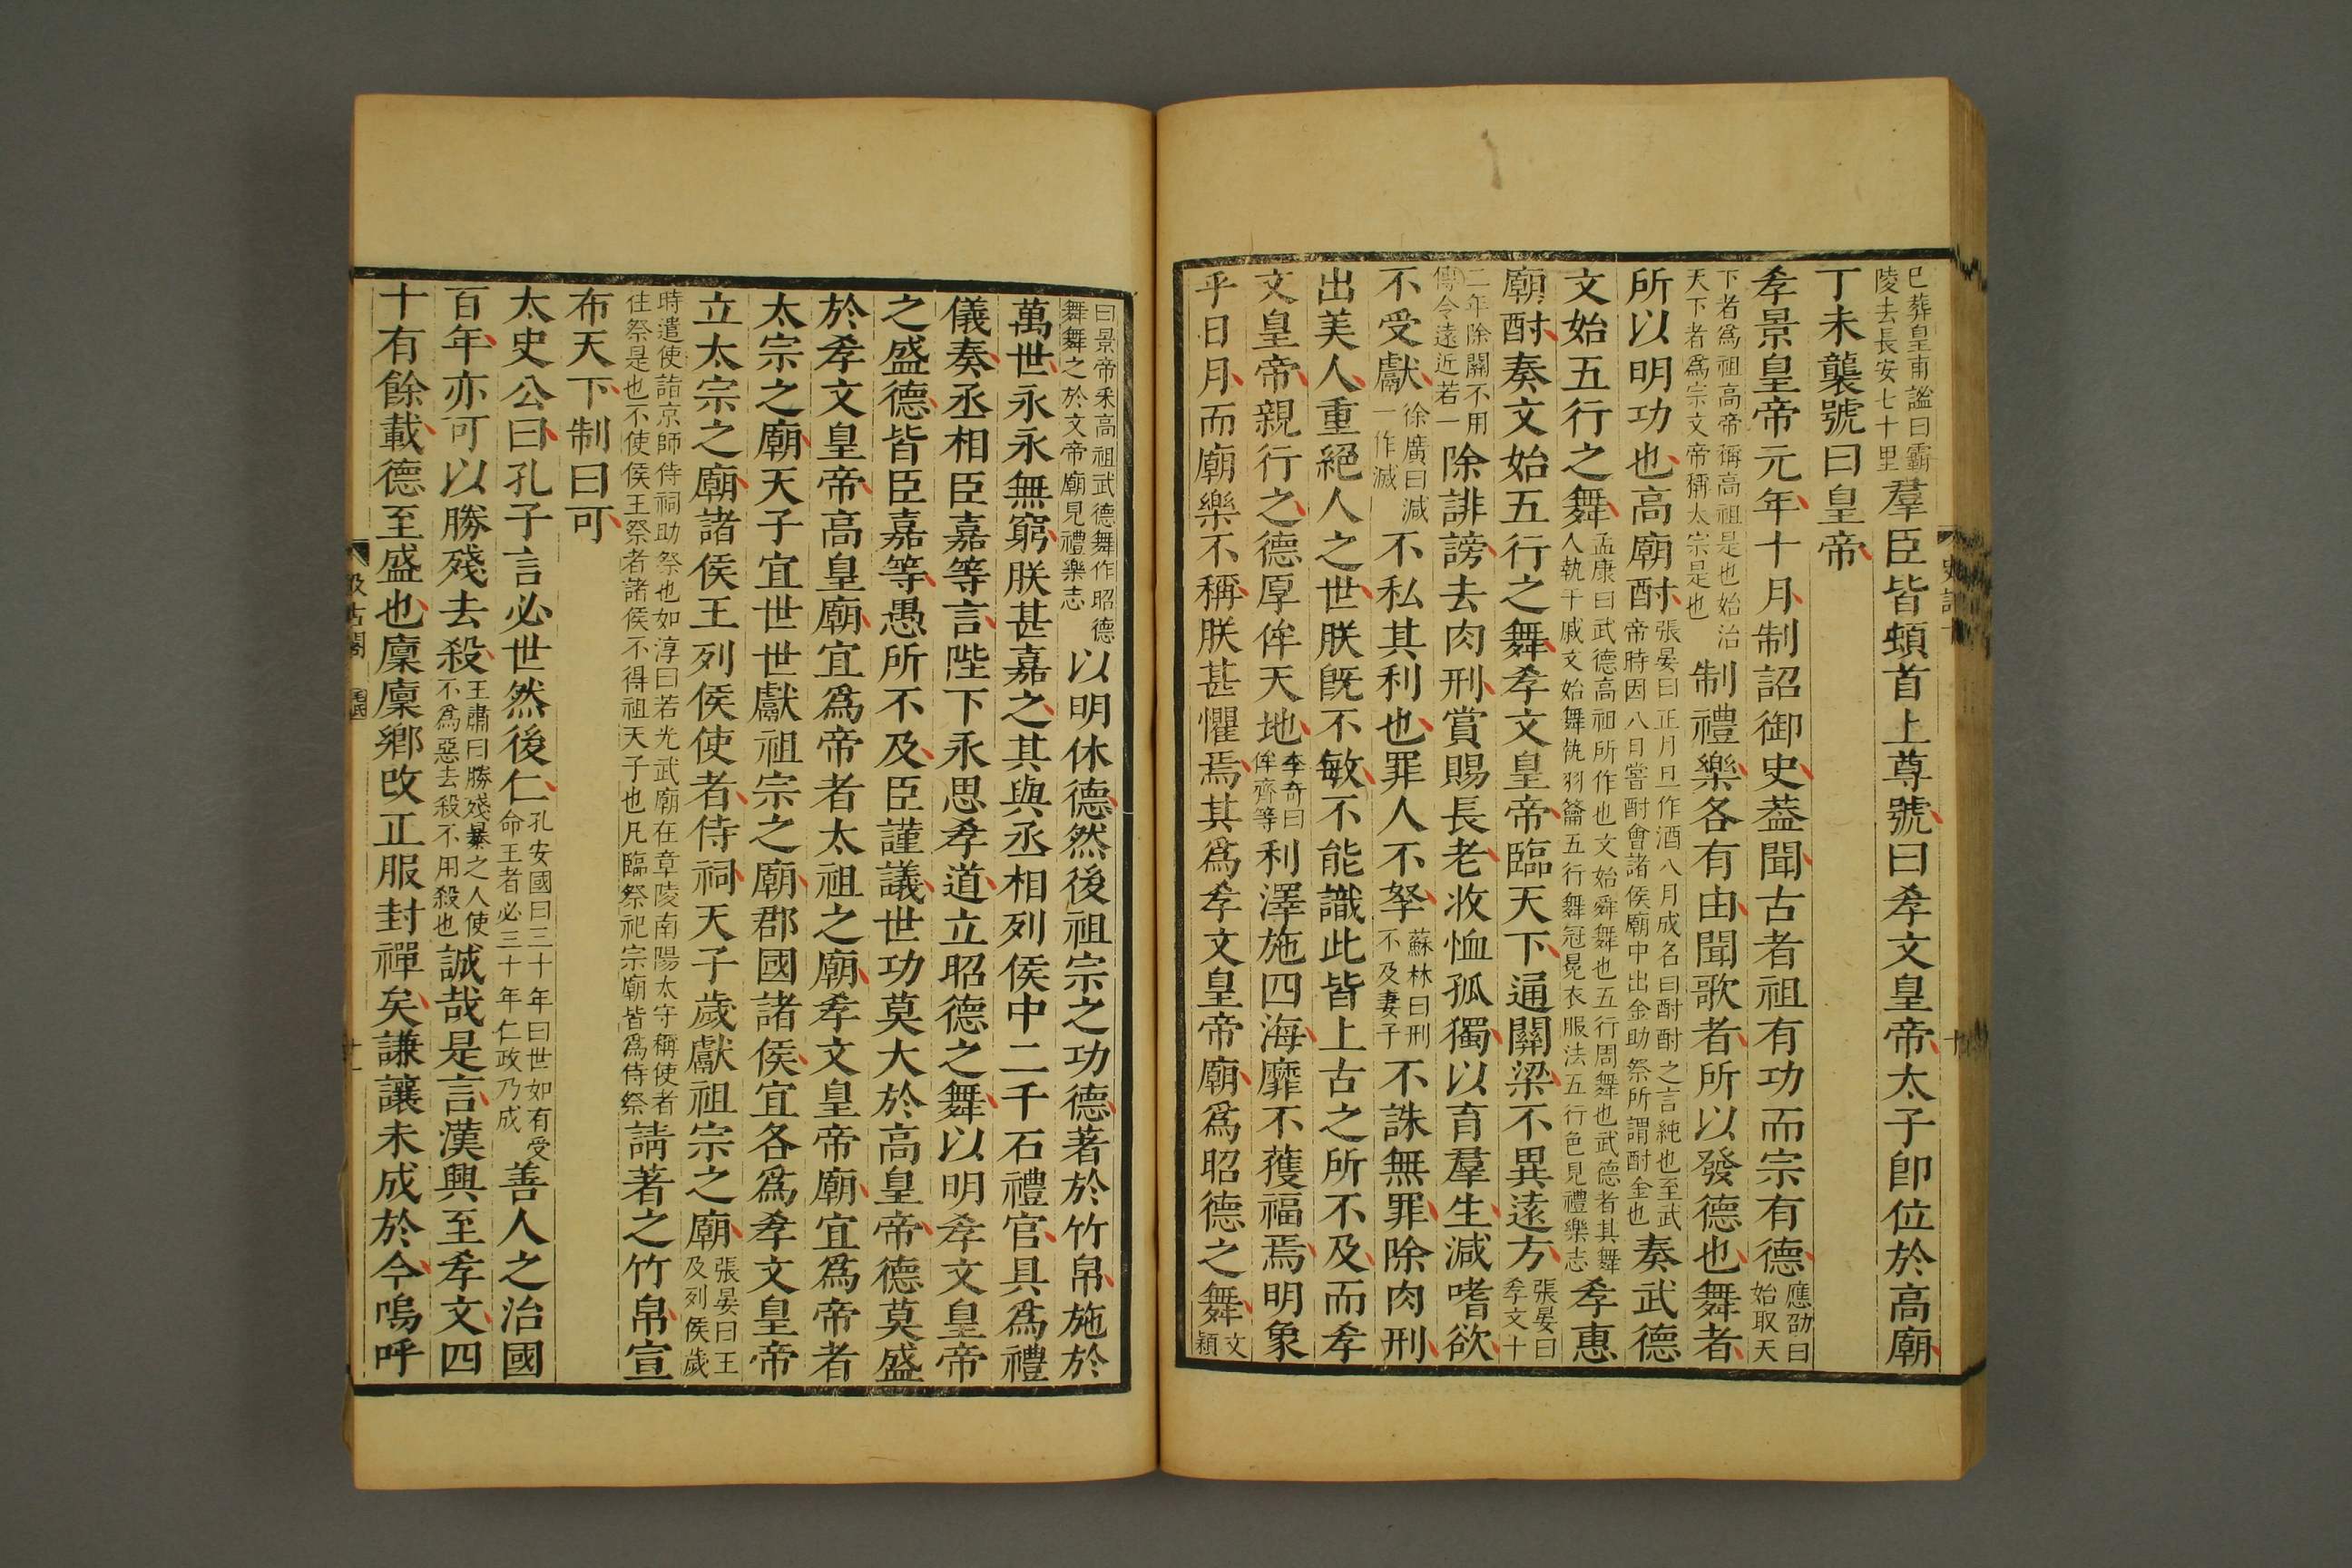 巳葬皇甫謐曰霸陵去長安七十里羣臣皆頓首上尊號曰孝文皇帝太子卽位於高廟
丁未襲號曰皇帝
孝景皇帝元年十月制詔御史葢聞古者祖有功而宗有德應劭曰始取天
下者爲祖高帝稱高祖是也始治天下者爲宗文帝稱太宗是也制禮樂各有由聞歌者所以發德也舞者
所以明功也高廟酎張晏曰正月旦作酒八月成名曰酎酎之言純也至武帝時因八日嘗酎會諸侯廟中出金助祭所謂酎金也奏武德
文始五行之舞孟康曰武德高祖所作也文始舜舞也五行周舞也武德者其舞人執干戚文始舞執羽籥五行舞冠冕衣服法五行色見禮樂志孝惠
廟酎奏文始五行之舞孝文皇帝臨天下通關梁不異遠方張晏曰孝文十
二年除關不用傳令遠近若一除誹謗去肉刑賞賜長老收恤孤獨以育羣生減嗜欲
不受獻徐廣曰減一作滅不私其利也罪人不孥蘇林曰刑不及妻子不誅無罪除肉刑
出美人重絕人之世朕旣不敏不能識此皆上古之所不及而孝
文皇帝親行之德厚侔天地李奇曰侔齊等利澤施四海靡不獲福焉明象
乎日月而廟樂不稱朕甚懼焉其爲孝文皇帝廟爲昭德之舞文穎
曰景帝采高祖武德舞作昭德舞舞之於文帝廟見禮樂志以明休德然後祖宗之功德著於竹帛施於
萬世永永無窮朕甚嘉之其與丞相列侯中二千石禮官具爲禮
儀奏丞相臣嘉等言陛下永思孝道立昭德之舞以明孝文皇帝
之盛德皆臣嘉等愚所不及臣謹議世功莫大於高皇帝德莫盛
於孝文皇帝高皇廟宜爲帝者太祖之廟孝文皇帝廟宜爲帝者
太宗之廟天子宜世世獻祖宗之廟郡國諸侯宜各爲孝文皇帝
立太宗之廟諸侯王列侯使者侍祠天子歲獻祖宗之廟張晏曰王及列侯歲
時遣使詣京師侍祠助祭也如淳曰若光武廟在章陵南陽太守稱使者往祭是也不使侯王祭者諸侯不得祖天子也凡臨祭祀宗廟皆爲侍祭請著之竹帛宣
布天下制曰可
太史公曰孔子言必世然後仁孔安國曰三十年曰世如有受命王者必三十年仁政乃成善人之治國
百年亦可以勝殘去殺王肅曰勝殘暴之人使不爲惡去殺不用殺也誠哉是言漢興至孝文四
十有餘載德至盛也廩廩鄉改正服封禪矣謙讓未成於今嗚呼
汲古閣
十一